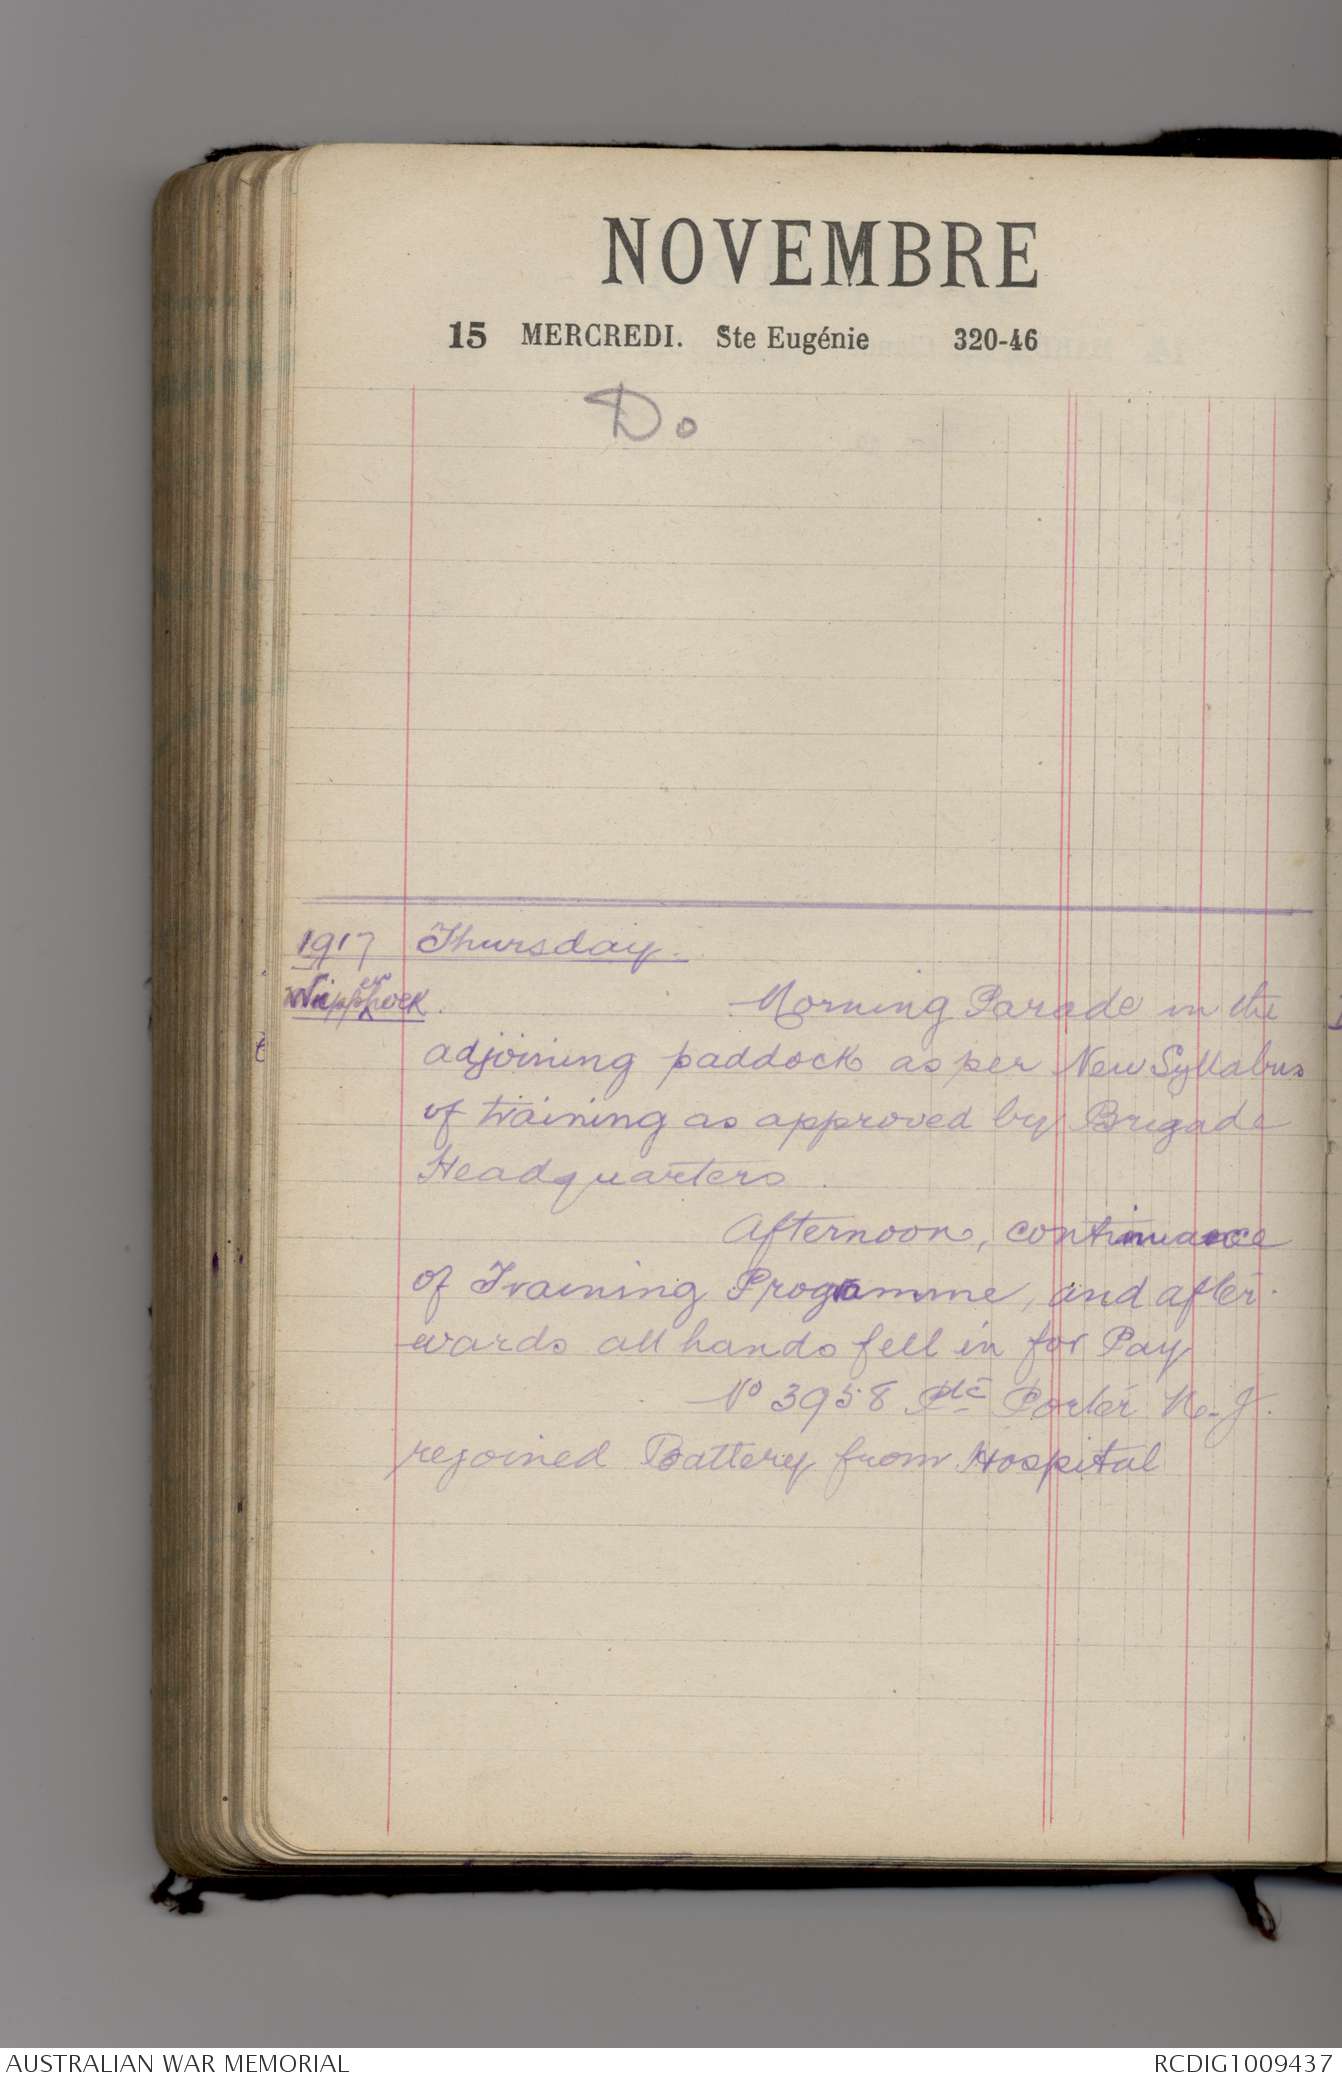 NOVEMBRE
15 MERCREDI. Ste Eugénie 320-46
Do
1917 Thursday.
Wippenhoek. Morning Parade in the
adjoining paddock as per New Syllabus
of training as approved by Brigade
Headquarters.
Afternoon, continuance
of Training Programme, and after-
wards all hands fell in for Pay
No 3958 Pte Porter
rejoined Battery from Hospital
AUSTRALIAN WAR MEMORIAL
RCDIG1009437